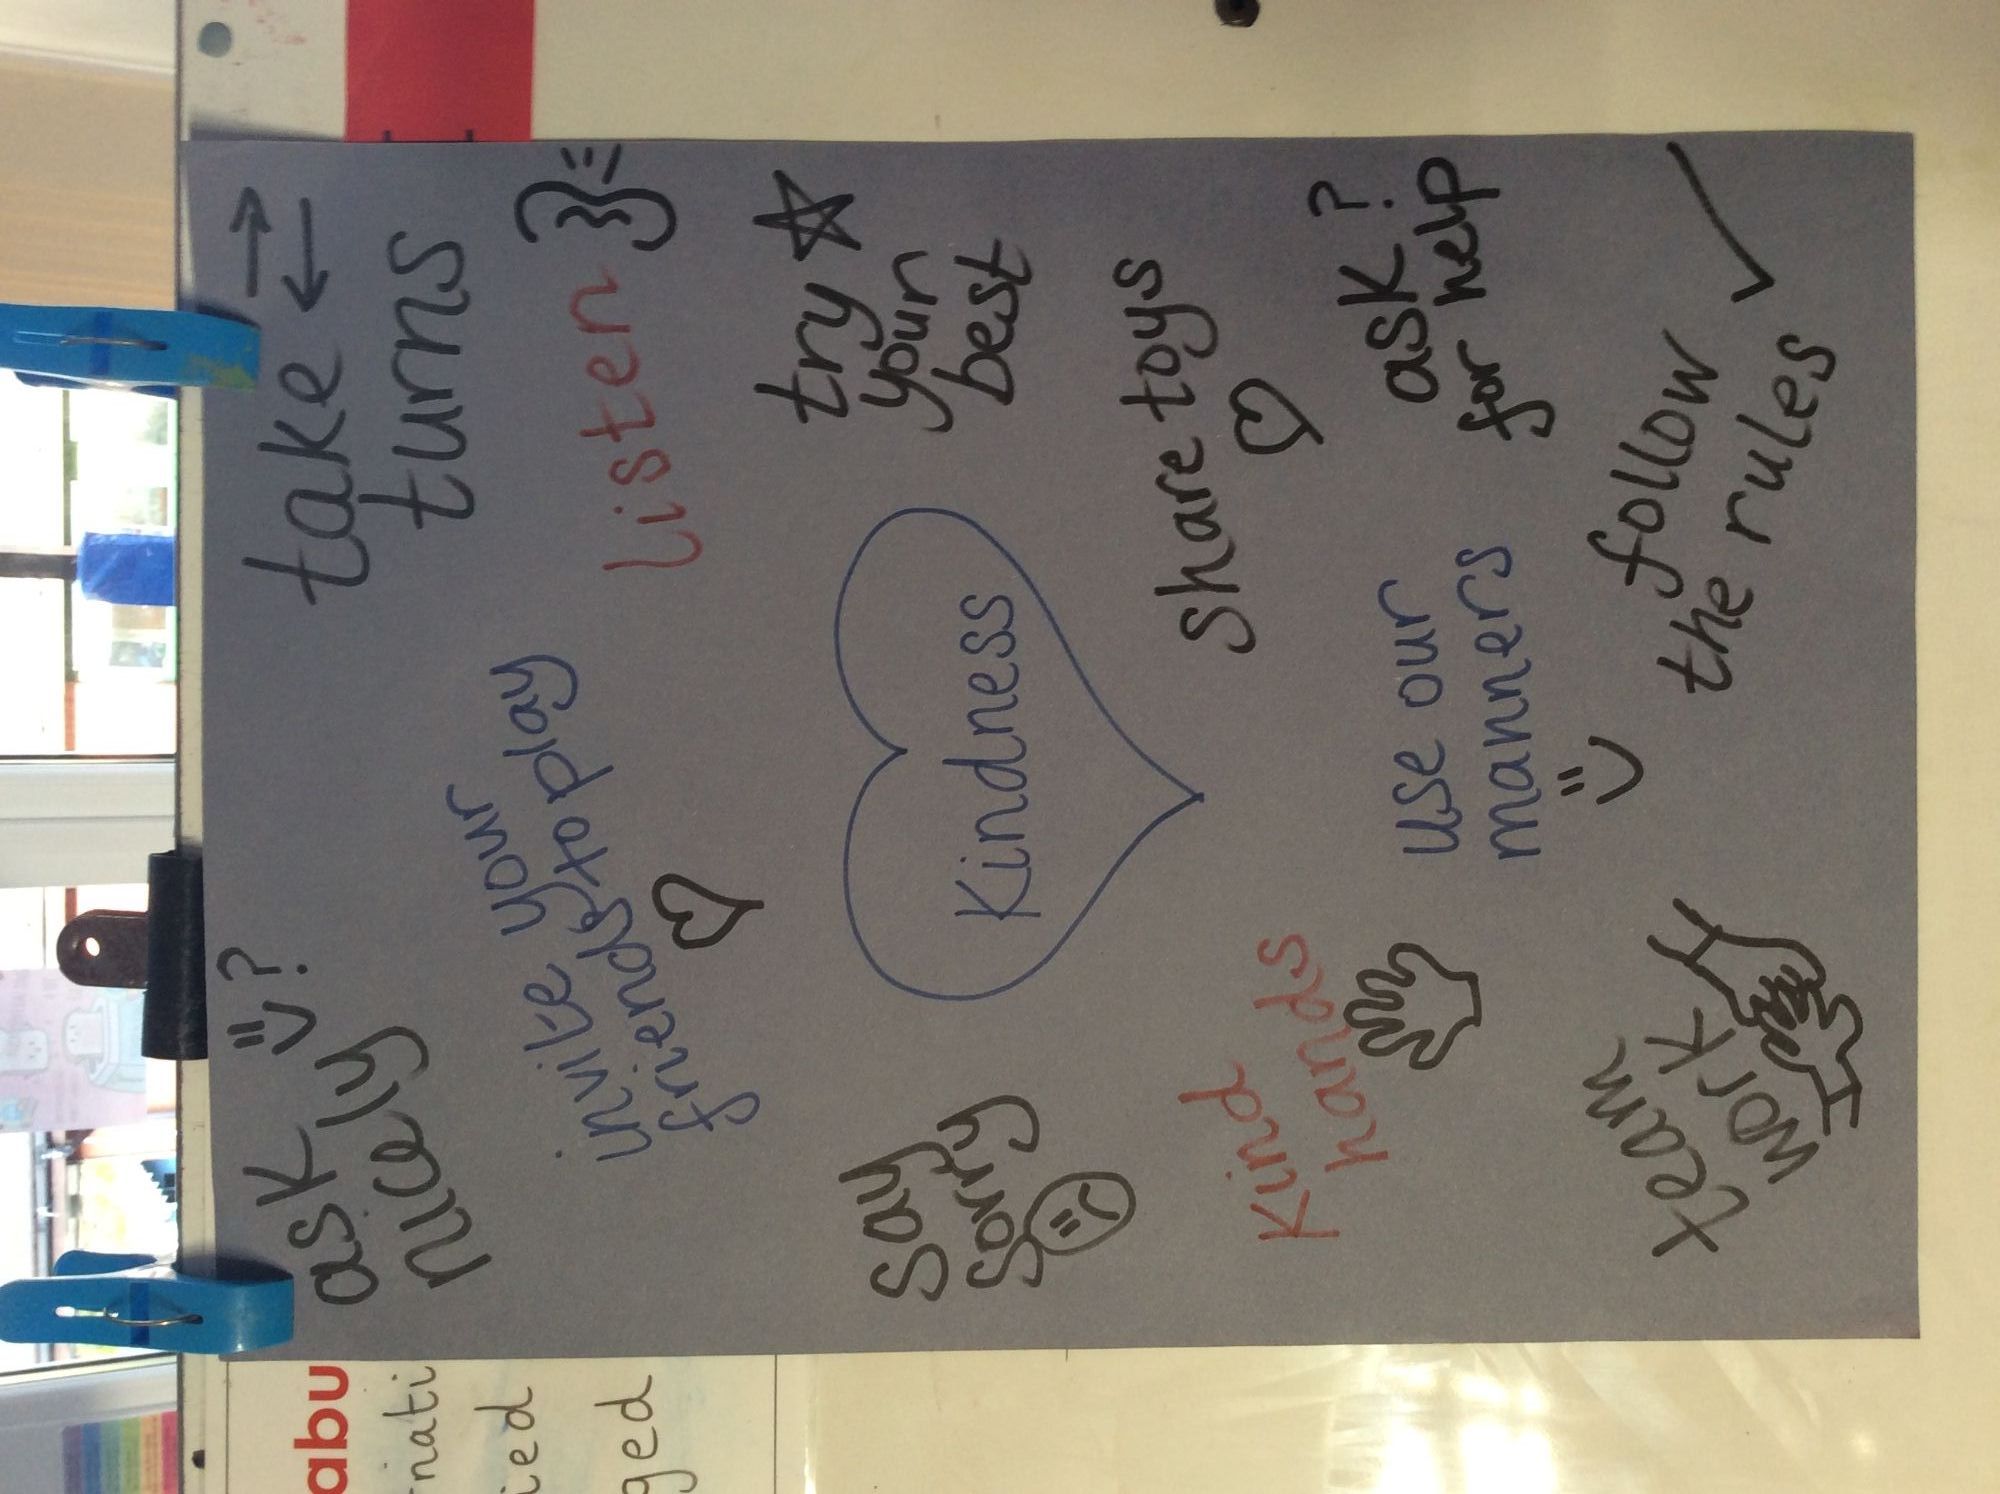 ask
nicely
?
take
turns
invite your
friends to play
Listen
try
your
best
Kindness
say
sorry
share toys
kind
hands
use our
manners
ask ?
for help
team
work
follow
the rules
abu
nati
ied
ged